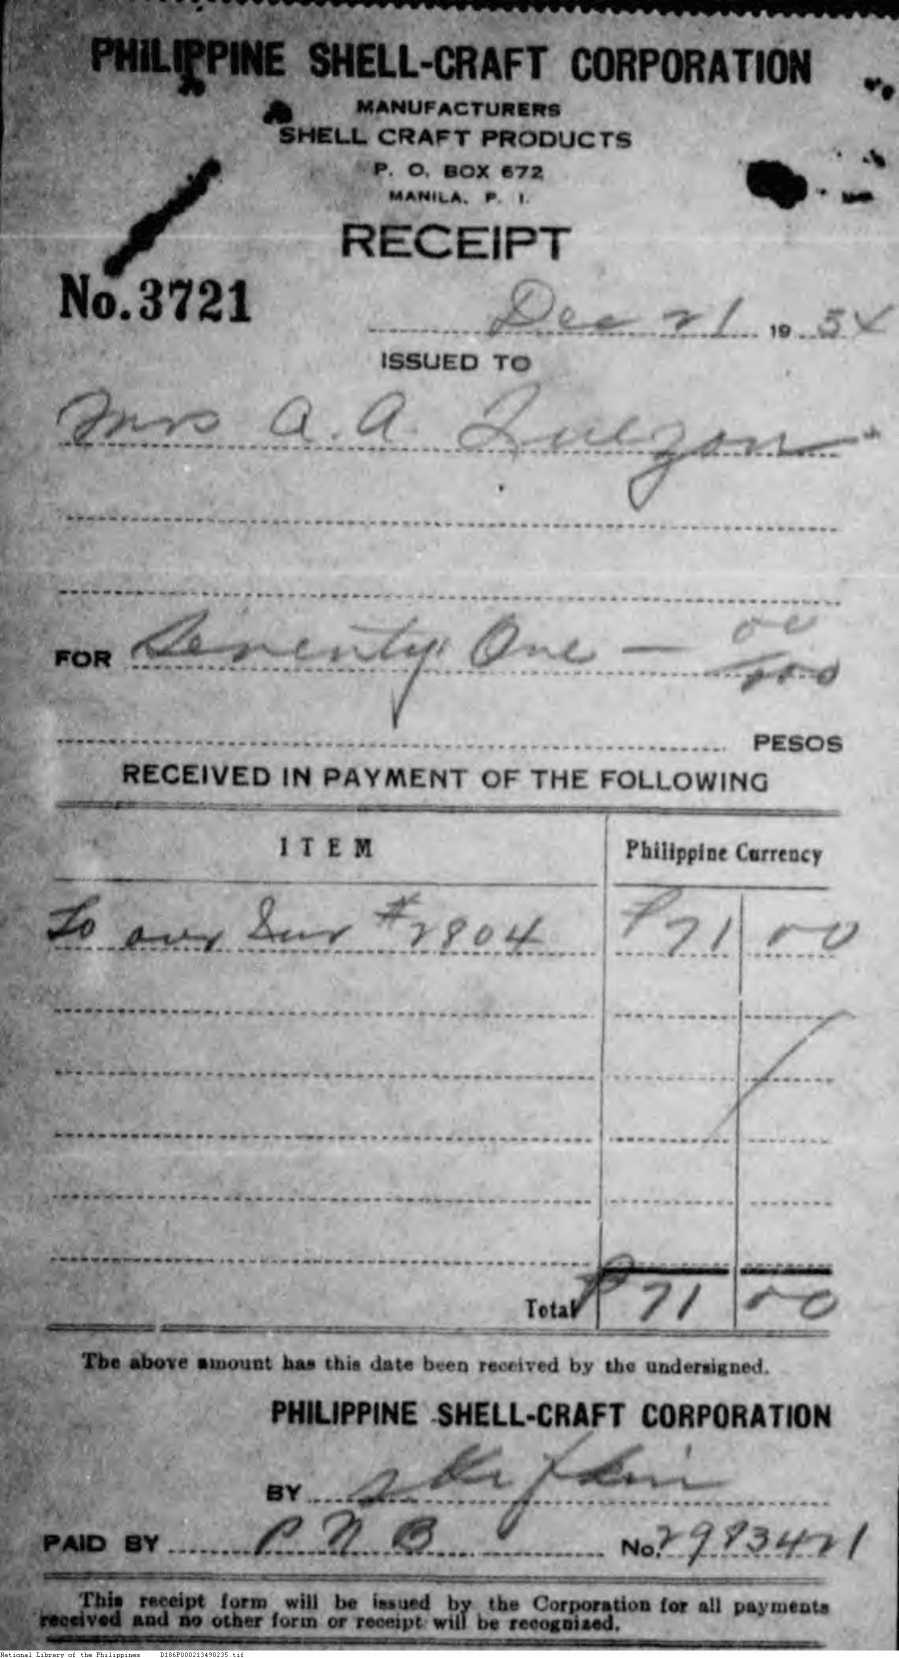 PHILIPPINE SHELL-CRAFT CORPORATION
MANUFACTURERS
SHELL CRAFT PRODUCTS
P. O. BOX 672
MANILA, P. I.
RECEIPT
No. 3721
Dec 21 1934
ISSUED TO
Mrs A. A. Quezon
FOR Seventy One — 00/100
PESOS
RECEIVED IN PAYMENT OF THE FOLLOWING
ITEM Philippine Currency
To our Inv #2804 ₱71 00
Total ₱71 00
The above amount has this date been received by the undersigned.
PHILIPPINE SHELL-CRAFT CORPORATION
BY
PAID BY P N B No. 2983421
This receipt form will be issued by the Corporation for all payments
received and no other form or receipt will be recognized.
National Library of the Philippines D186P000213490235.tif